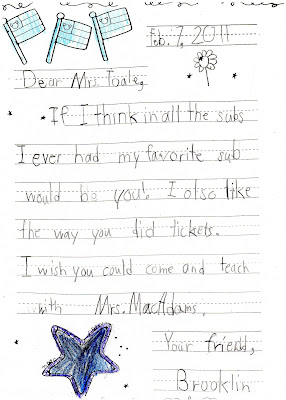 Feb. 7, 2011
Dear Mrs. Toale,
If I think in all the subs
I ever had my favorite sub
would be you! I also like
the way you did tickets.
I wish you could come and teach
with Mrs. MacAdams.
Your friend,
Brooklin